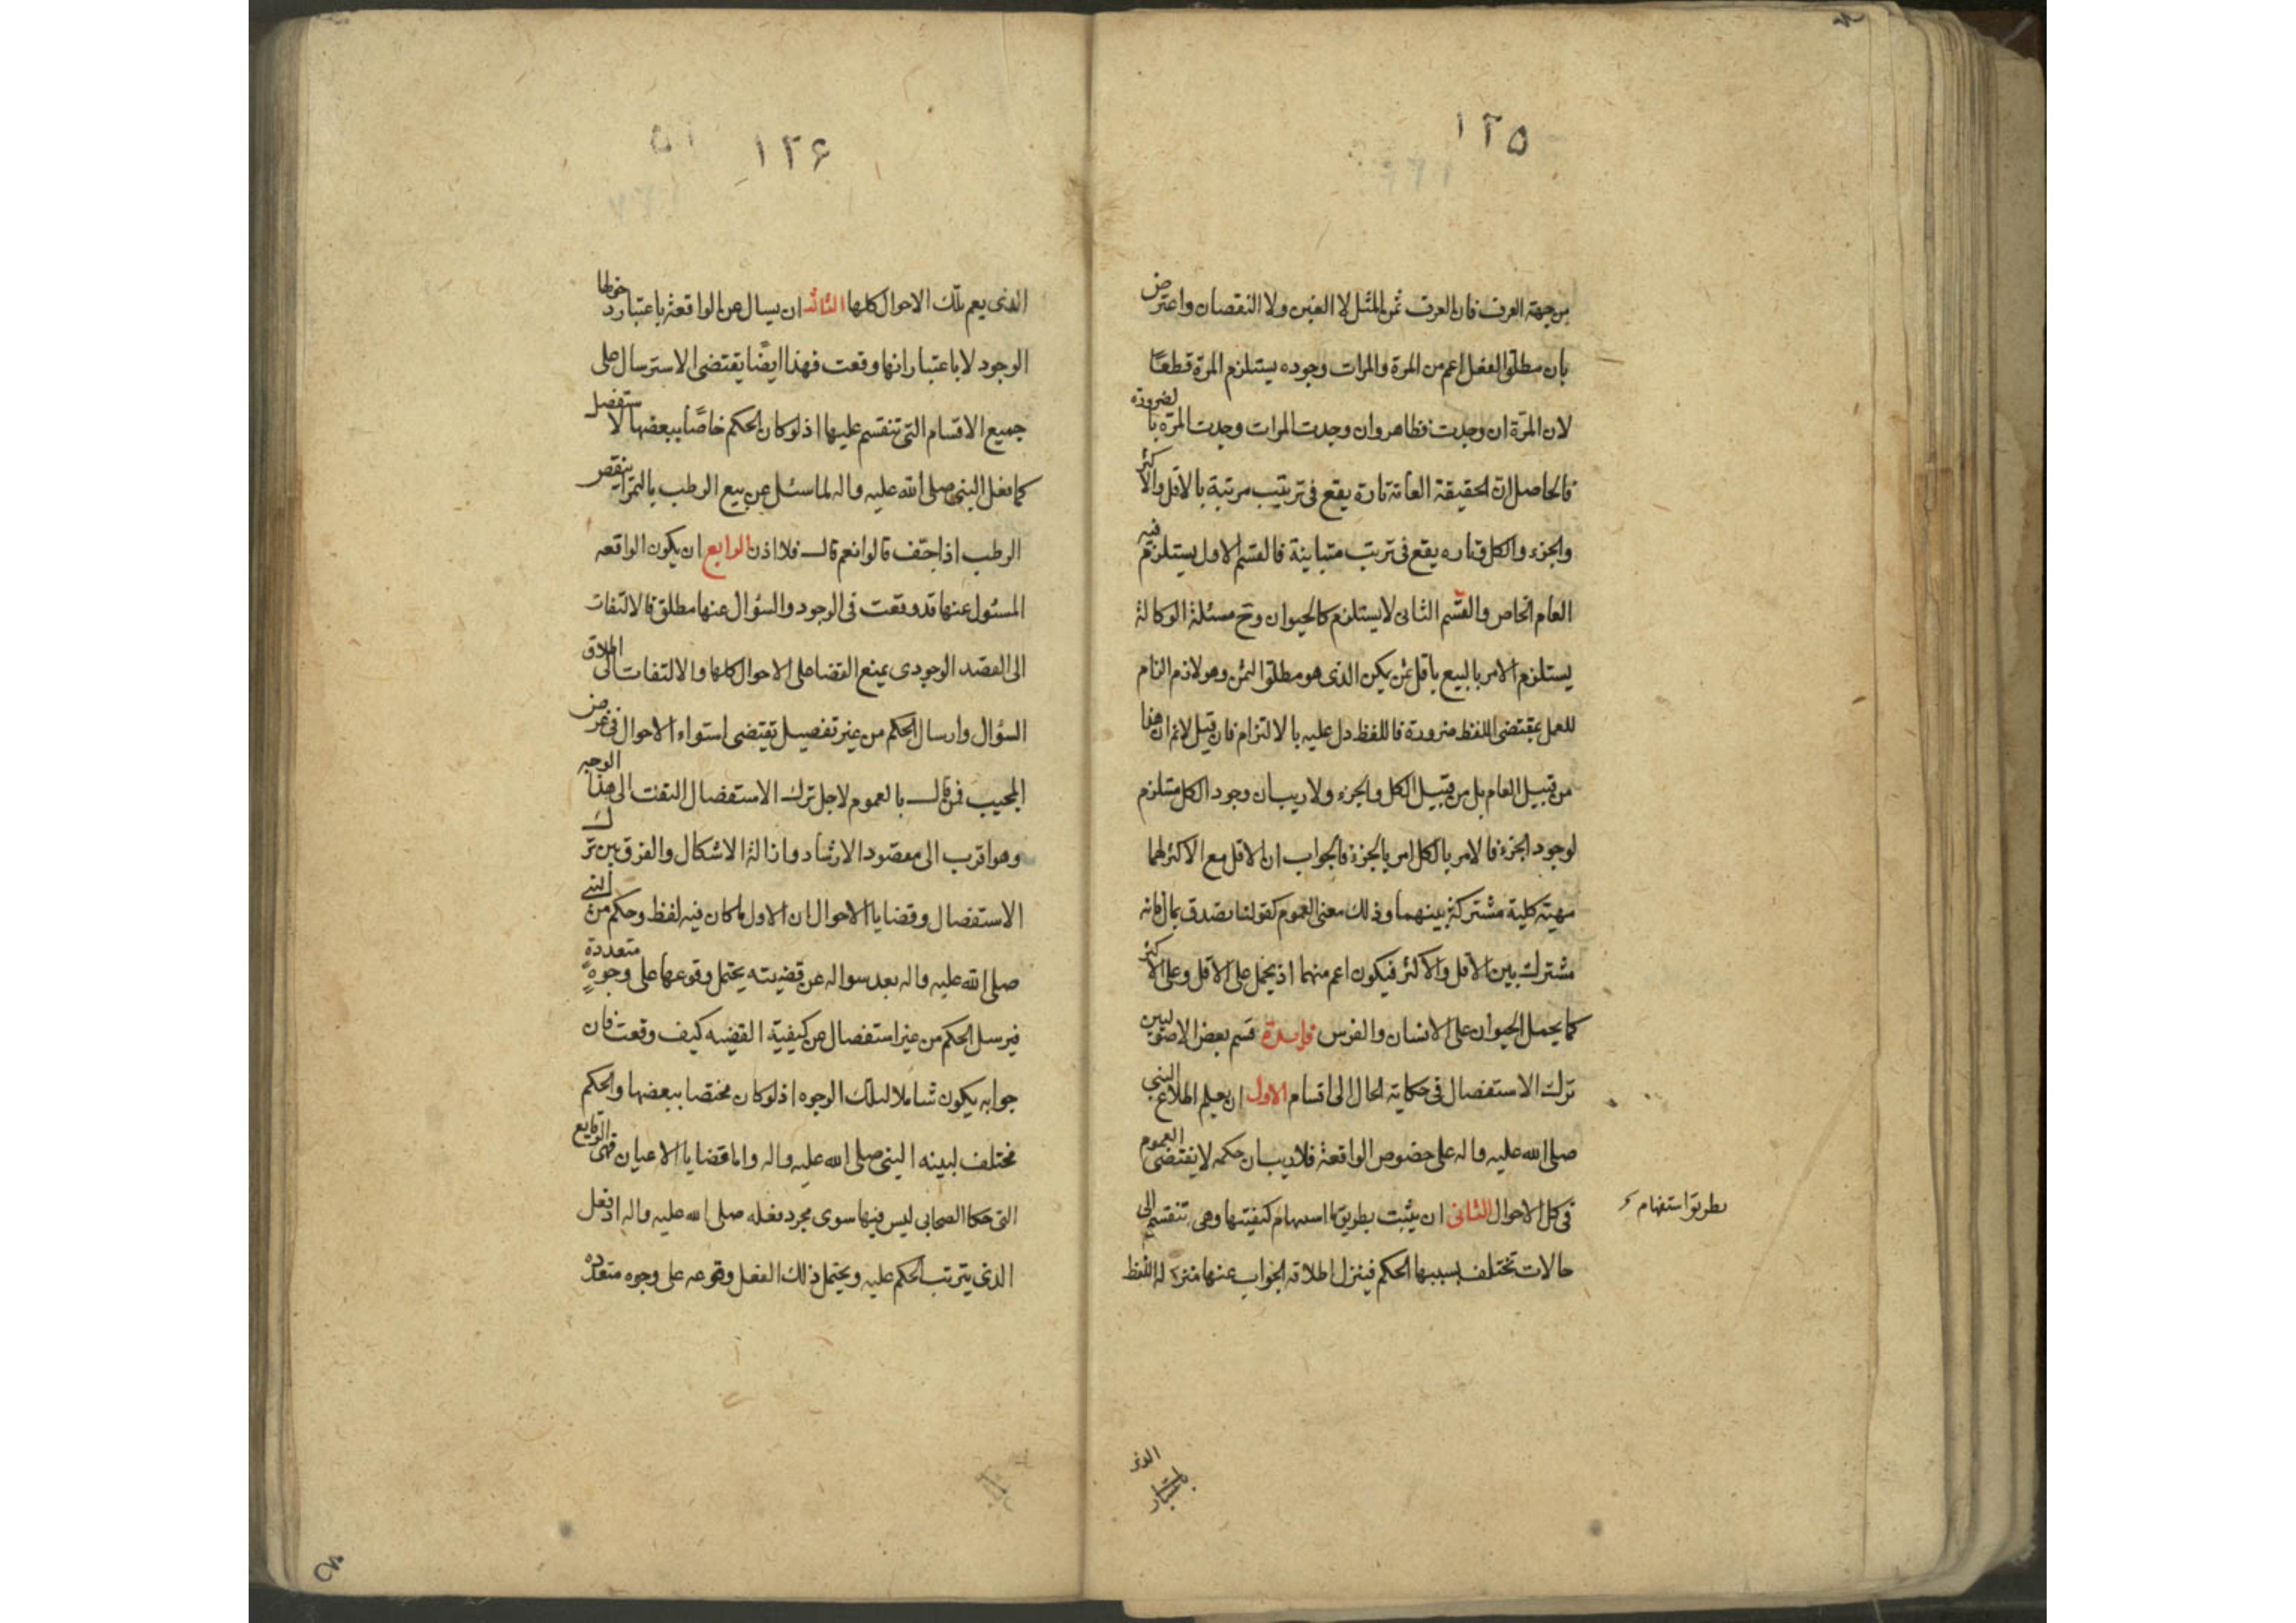 ١٢٥
من جهة العرف فان العرف ثمن المثل لا الغبن ولا النقصان واعترض
بان مطلق الفعل اعم من المرة والمرات وجوده يستلزم المرة قطعًا
لان المرّة ان وجدت فظاهر وان وجدت المرات وجدت المرّة بالضرورة
فالحاصل انّ الحقيقة العامّة تارة يقع فى ترتيب مرتبة بالاقل والاكثر
والجزء والكل وتاره يقع فى تريب متباينة فالقسم الاول يستلزم فيه
العام الخاص والقسم الثانى لا يستلزم كالحيوان وح مسئلة الوكالة
يستلزم الامر بالبيع باقل ثمن يكن الذى هو مطلق الثمن وهو لازم الزام
للعمل بمقتضى اللفظ ضرورة فاللفظ دل عليه بالالتزام فان قيل لا نم ان هذا
من قبيل العام بل من قبيل الكل والجزء ولا ريب ان وجود الكل مستلزم
لوجود الجزء فالامر بالكل امر بالجزء فالجواب ان الاقل مع الاكثر لهما
مهيّة كلية مشتركة بينهما وذلك معنى العموم كقولنا تصدق بمال فانه
مشترك بين الاقل والاكثر فيكون اعم منهما اذ يحمل على الاقل وعلى الاكثر
كما يحمل الحيوان على الانسان والفرس فايدة قسم بعض الاصوليين
ترك الاستفصال فى حكاية الحال الى اقسام الاول ان يعلم اطلاع النبي
صلى الله عليه واله على خصوص الواقعة فلا ريب ان حكمه لا يقتضى العموم
فى كل الاحوال الثانى ان يثبت بطريق استبهام كيفيتها وهى تنقسم الى
بطريق استفهام
حالات تختلف بسببها الحكم فينزل اطلاقه الجواب عنها منزلة اللفظ
الذى
١٢۶
الذى يعم تلك الاحوال كلها الثالث ان يسال عن الواقعة باعتبار دخولها
الوجود لا باعتبار انها وقعت فهذا ايضًا يقتضى الاسترسال على
جميع الاقسام التى تنقسم عليها اذ لو كان الحكم خاصًّا ببعضها لاستفصل
كما فعل النبى صلى الله عليه واله لما سئل عن بيع الرطب بالتمر اينقص
الرطب اذا جف قالوا نعم قال فلا اذن الرابع ان يكون الواقعه
المسئول عنها قد وقعت فى الوجود والسؤال عنها مطلق فالالتفات
الى القصد الوجودى يمنع القضا على الاحوال كلها والالتفات الى اطلاق
السؤال وارسال الحكم من غير تفصيل يقتضى استواء الاحوال فى غرض
المجيب فمن قال بالعموم لاجل ترك الاستفصال التفت الى هذا الوجه
وهو اقرب الى مقصود الارشاد وازالة الاشكال والفرق بين ترك
الاستفصال وقضايا الاحوال ان الاول ما كان فيه لفظ وحكم من النبي
صلى الله عليه واله بعد سواله عن قضيته يحتمل وقوعها على وجوهٍ متعددة
فيرسل الحكم من غير استفصال عن كيفية القضيه كيف وقعت فان
جوابه يكون شاملا لتلك الوجوه اذ لو كان مختصا ببعضها والحكم
مختلف لبينه النبى صلى الله عليه واله واما قضايا الاعيان فهى الوقايع
التى حكاها الصحابى ليس فيها سوى مجرد فعله صلى الله عليه واله او فعل
الذى يترتب الحكم عليه ويحتمل ذلك الفعل وقوعه على وجوه متعدده